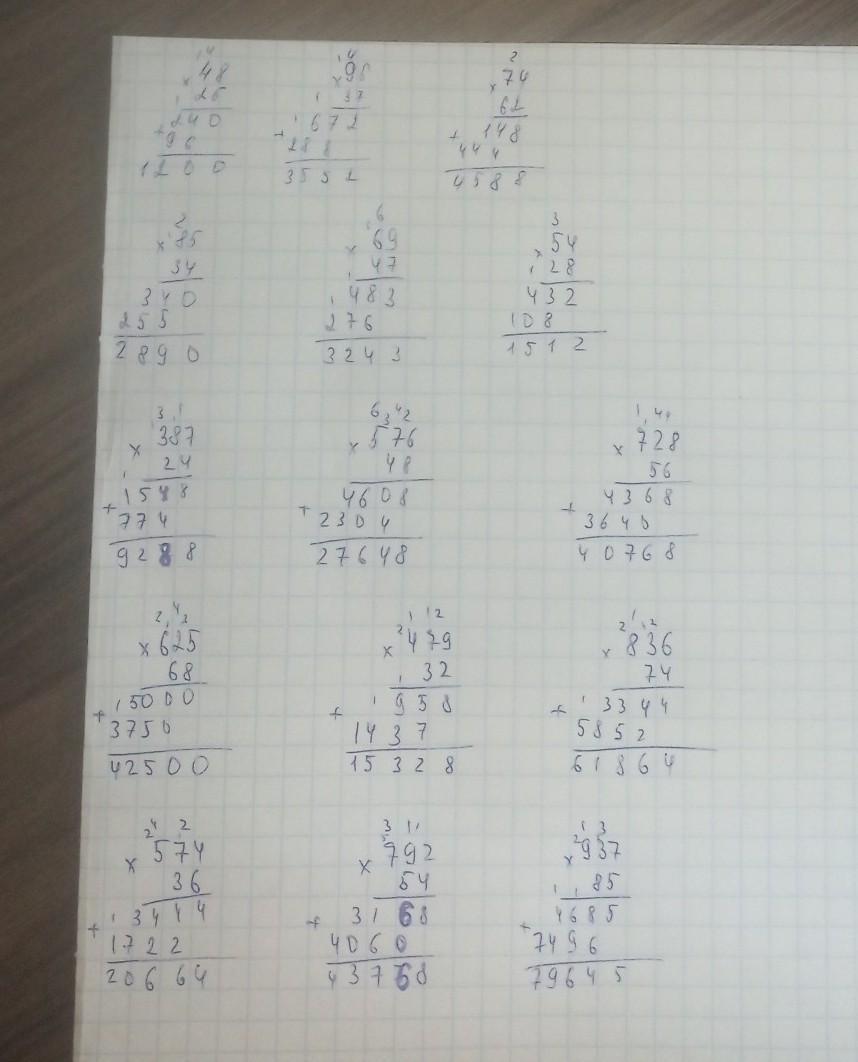 1 4
× 48
1 25
240
+ 96
1200
1 4
× 96
1 37
1 672
+ 288
3552
2
× 74
62
148
+ 444
4588
2
× 1 85
34
340
255
2890
6
× 69
1 47
1 483
276
3243
3
× 54
1 28
432
108
1512
3 1
× 387
24
1548
+ 774
9288
6 3 4 2
× 576
48
4608
+ 2304
27648
1 4 1
× 728
56
4368
+ 3640
40768
2 1 4 2
× 625
68
15000
+ 3750
42500
2 1 1 2
× 479
1 32
1 958
+ 1437
15328
2 1 1 2
× 836
74
1 3344
+ 5852
61864
2 4 2
× 574
36
1 3444
+ 1722
20664
3 1 1
× 792
54
3168
+ 4060
43768
2 1 3
× 937
1 1 85
4685
+ 7496
79645